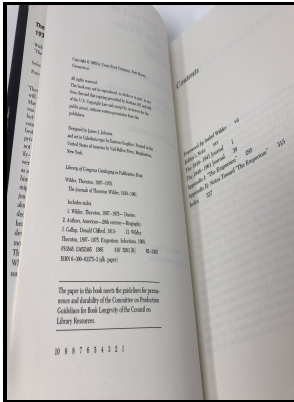 Copyright © 1985 by Yale
Connecticut.
All rights reserved.
This book may not be reproduced, in whole or in part, in any
form (beyond that copying permitted by Sections 107 and 108
of the U.S. Copyright Law and except by reviewers for the
public press), without written permission from the
publishers.
Designed by James J. Johnson
and set in Caledonia type by Eastern Graphics. Printed in the
United States of America by Vail-Ballou Press, Binghamton,
New York
Library of Congress Cataloging in Publication Data
Wilder, Thornton, 1897–1975.
The journals of Thornton Wilder, 1939–1961.
Includes index.
1. Wilder, Thornton, 1897–1975—Diaries.
2. Authors, American—20th century—Biography.
I. Gallup, Donald Clifford, 1913– II. Wilder,
Thornton, 1897–1975. Emporium. Selections. 1985.
PS3545 1985
ISBN 0-300-03375-3 (alk. paper)
The paper in this book meets the guidelines for perma-
nence and durability of the Committee on Production
Guidelines for Book Longevity of the Council on
Library Resources.
10 9 8 7 6 5 4 3 2 1
Contents
Foreword by Isabel Wilder vii
The 1939–1941 Journal 1
The 1948–1961 Journal 39
Appendix I: "The Emporium" 293
Appendix II: Notes Toward "The Emporium" 315
Index 337